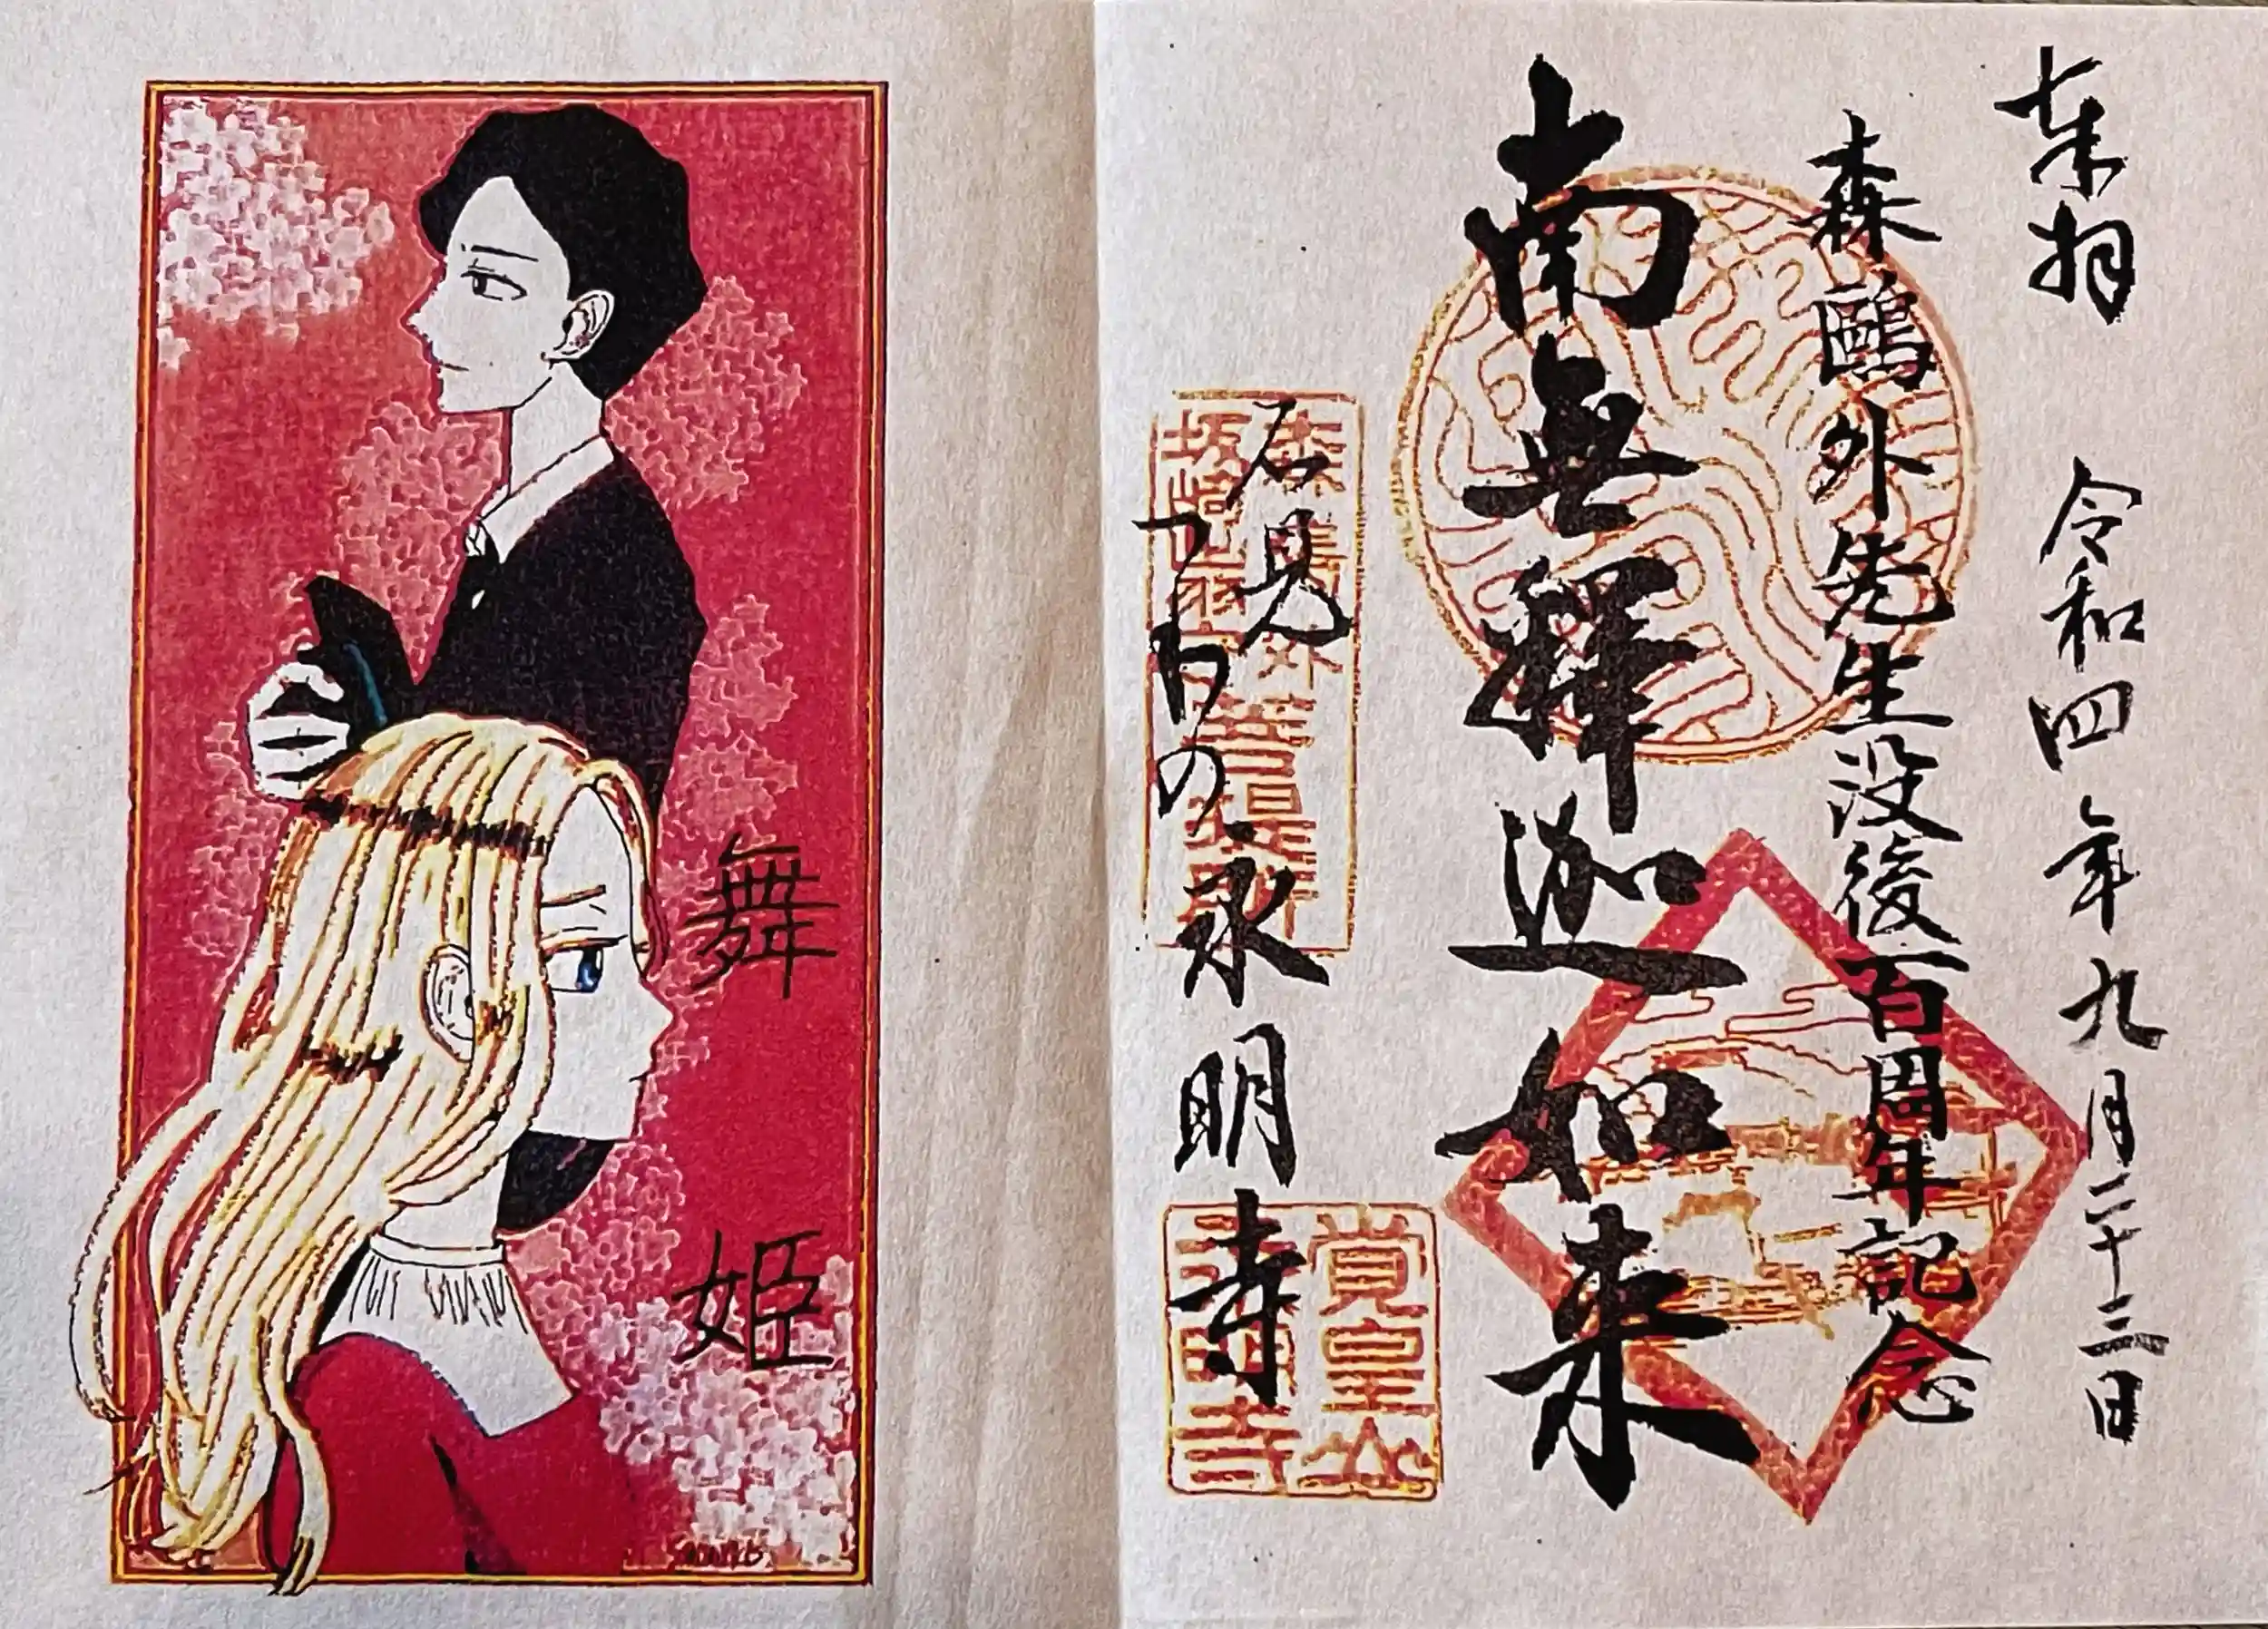 奉拝 令和四年九月二十三日
森鷗外先生没後百周年記念
南無釋迦如来
石見
つわの 永明寺
森鷗外菩提所
坂崎出羽
覚皇山
永明寺
舞姫